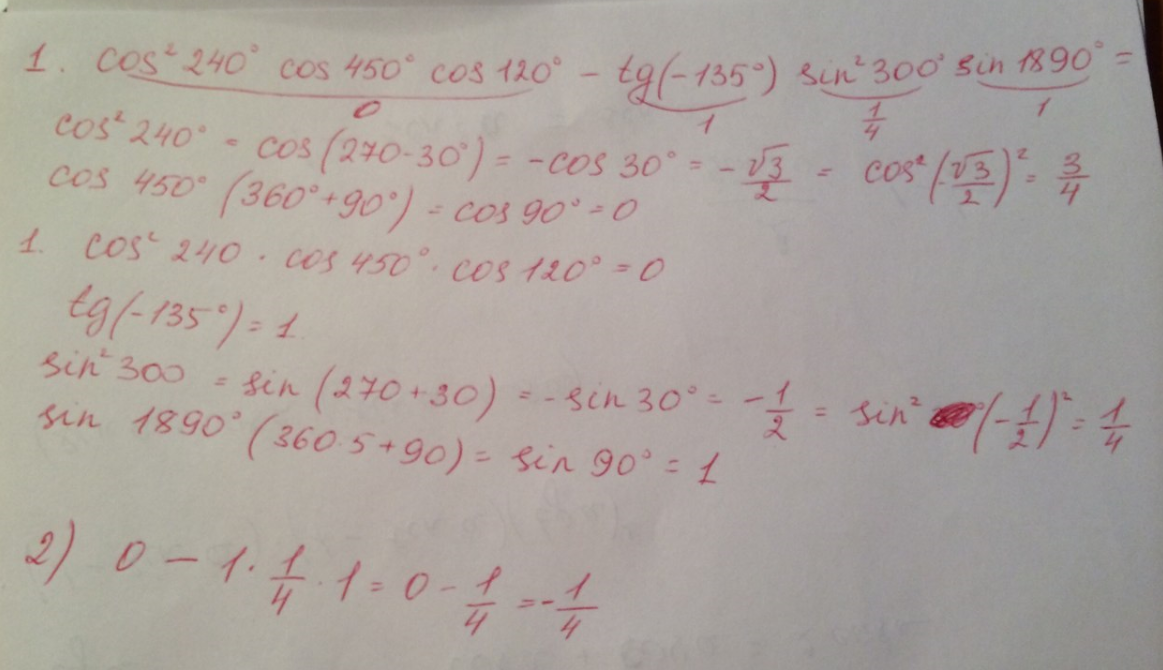 1. cos² 240° cos 450° cos 120° − tg(−135°) sin² 300° sin 1890° =
0 1 1/4 1
cos² 240° = cos (270-30°) = -cos 30° = -√3/2 = cos² (√3/2)² = 3/4
cos 450° (360°+90°) = cos 90° = 0
1. cos² 240 · cos 450° · cos 120° = 0
tg(-135°) = 1
sin² 300 = sin (270+30) = -sin 30° = -1/2 = sin² (-1/2)² = 1/4
sin 1890° (360·5+90) = sin 90° = 1
2) 0 − 1 · 1/4 · 1 = 0 - 1/4 = -1/4